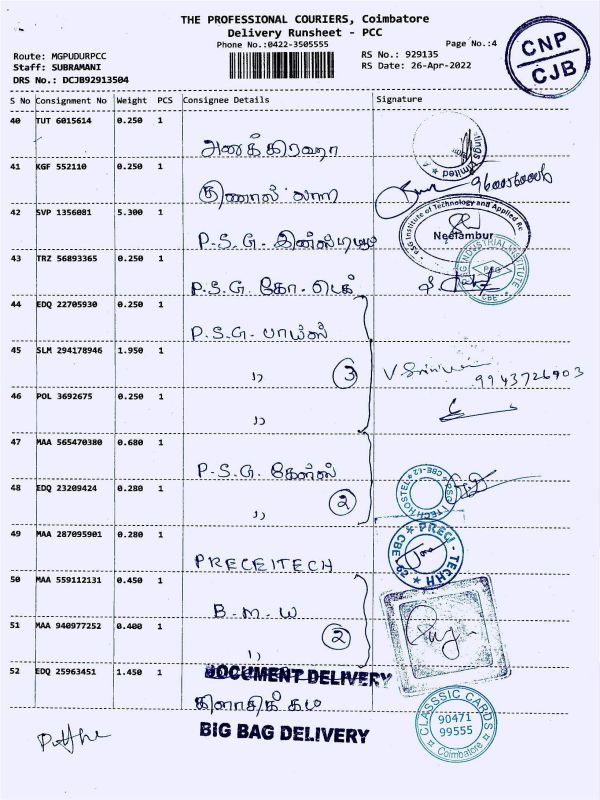 THE PROFESSIONAL COURIERS, Coimbatore
Delivery Runsheet - PCC
Phone No.:0422-3505555
Page No.:4
Route: MGPUDURPCC
Staff: SUBRAMANI
DRS No.: DCJB92913504
RS No.: 929135
RS Date: 26-Apr-2022
CNP
CJB
S No Consignment No Weight PCS Consignee Details Signature
40 TUT 6015614 0.250 1
41 KGF 552110 0.250 1
குணால்
42 SVP 1356081 5.300 1
P.S.G.
PSG Institute of Technology and Applied Re
Neelambur
43 TRZ 56893365 0.250 1
P.S.G. கோ-டெக்
INDUSTRIAL INSTITUTE
PSG
CBE
44 EDQ 22705930 0.250 1
P.S.G. பாய்ஸ்
45 SLM 294178946 1.950 1
,, 3
9943726903
46 POL 3692675 0.250 1
,,
47 MAA 565470380 0.680 1
P.S.G. கேர்ல்ஸ்
48 EDQ 23209424 0.280 1
,, 2
PSG iTECH HOSTEL CBE-62
49 MAA 287095901 0.280 1
PRECEITECH
PRECI - TECHH
CBE-62
50 MAA 559112131 0.450 1
B-M-W
51 MAA 940977252 0.400 1
,, 2
52 EDQ 25963451 1.450 1
DOCUMENT DELIVERY
கிளாசிக் கம
BIG BAG DELIVERY
CLASSSIC CARDS
90471
99555
Coimbatore